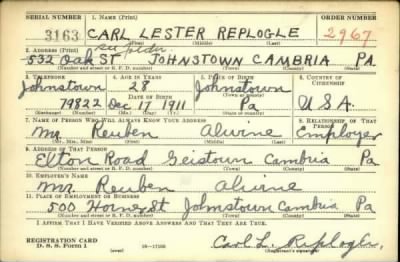 SERIAL NUMBER 1. NAME (Print) ORDER NUMBER
3163 CARL LESTER REPLOGLE 2967
(First) (Middle) (Last)
2. ADDRESS (Print)
532 Oak ST JOHNSTOWN CAMBRIA PA.
(Number and street or R. F. D. number) (Town) (County) (State)
3. TELEPHONE 4. AGE IN YEARS 5. PLACE OF BIRTH 6. COUNTRY OF CITIZENSHIP
Johnstown 28 Johnstown
DATE OF BIRTH (Town or county)
79822 Dec 17 1911 Pa U.S.A.
(Exchange) (Number) (Mo.) (Day) (Yr.) (State or country)
7. NAME OF PERSON WHO WILL ALWAYS KNOW YOUR ADDRESS 8. RELATIONSHIP OF THAT PERSON
Mr. Reuben Alwine Employer
(Mr., Mrs., Miss) (First) (Middle) (Last)
9. ADDRESS OF THAT PERSON
Elton Road Geistown Cambria Pa
(Number and street or R. F. D. number) (Town) (County) (State)
10. EMPLOYER'S NAME
Mr. Reuben Alwine
11. PLACE OF EMPLOYMENT OR BUSINESS
500 Horner St Johnstown Cambria Pa
(Number and street or R. F. D. number) (Town) (County) (State)
I AFFIRM THAT I HAVE VERIFIED ABOVE ANSWERS AND THAT THEY ARE TRUE.
REGISTRATION CARD
D. S. S. Form 1 (over) 16—17105 Carl L. Replogle
(Registrant's signature)